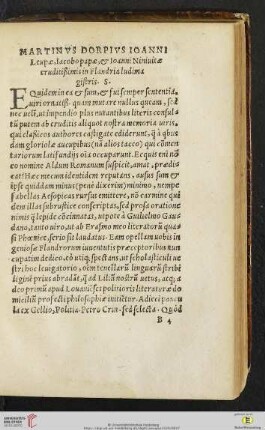 MARTINVS DORPIVS IOANNI
Leupæ, Iacobo papæ, & Ioanni Niniuitæ
eruditissimis in Flandria ludima
gistris. S.
EQuidem in ea & sum, & fui semper sententia,
viri ornatiss. quam mutare nullus queam, sed
nec uelim, ut impendio plus nutantibus literis consul
tũ putem ab eruditis aliquot nostra memoria uiris,
qui clasicos authores castigate ediderunt, q̃ à qbus
dam gloriolæ aucupibus (nõ alios taceo) qui cõmen
tariorum latifundijs eis occuparunt. Ecquis enì nõ
eo nomine Aldum Romanum suspicit, amat, prædi
cat? Hæc mecum identidem reputans, ausus sum &
ipse quiddam minus (penè dixerim) minimo, nempe
fabellas Aesopicas rursus emittere, nõ carmine qui
dem illas subrustice conscriptas, sed prosa oratione
nimis q̃ lepide cõcinnatas, uidelicet à Guilielmo Gau
dano, tanto uiro, ut ab Erasmo meo literatorũ quasi
sit Phœnice, serio sit laudatus. Eam opellam uobis in
geniosæ Flandrorum iuuentutis præceptoribus nun
cupatim dedico, eò utiq, spectans, ut scholasticulis ue
stri hoc leuigatorio, ceu tenellarũ linguarũ stribi
digine prius abradat, q̃ ad Liliũ nostrũ uetus, atq, a
deo primũ apud Louanienses politioris literaturæ do
micilium profecti philosophiæ initietur. Adieci paucu
la ex Gellio, Politia. Petro Crin. sed selecta. Quòd
B 4